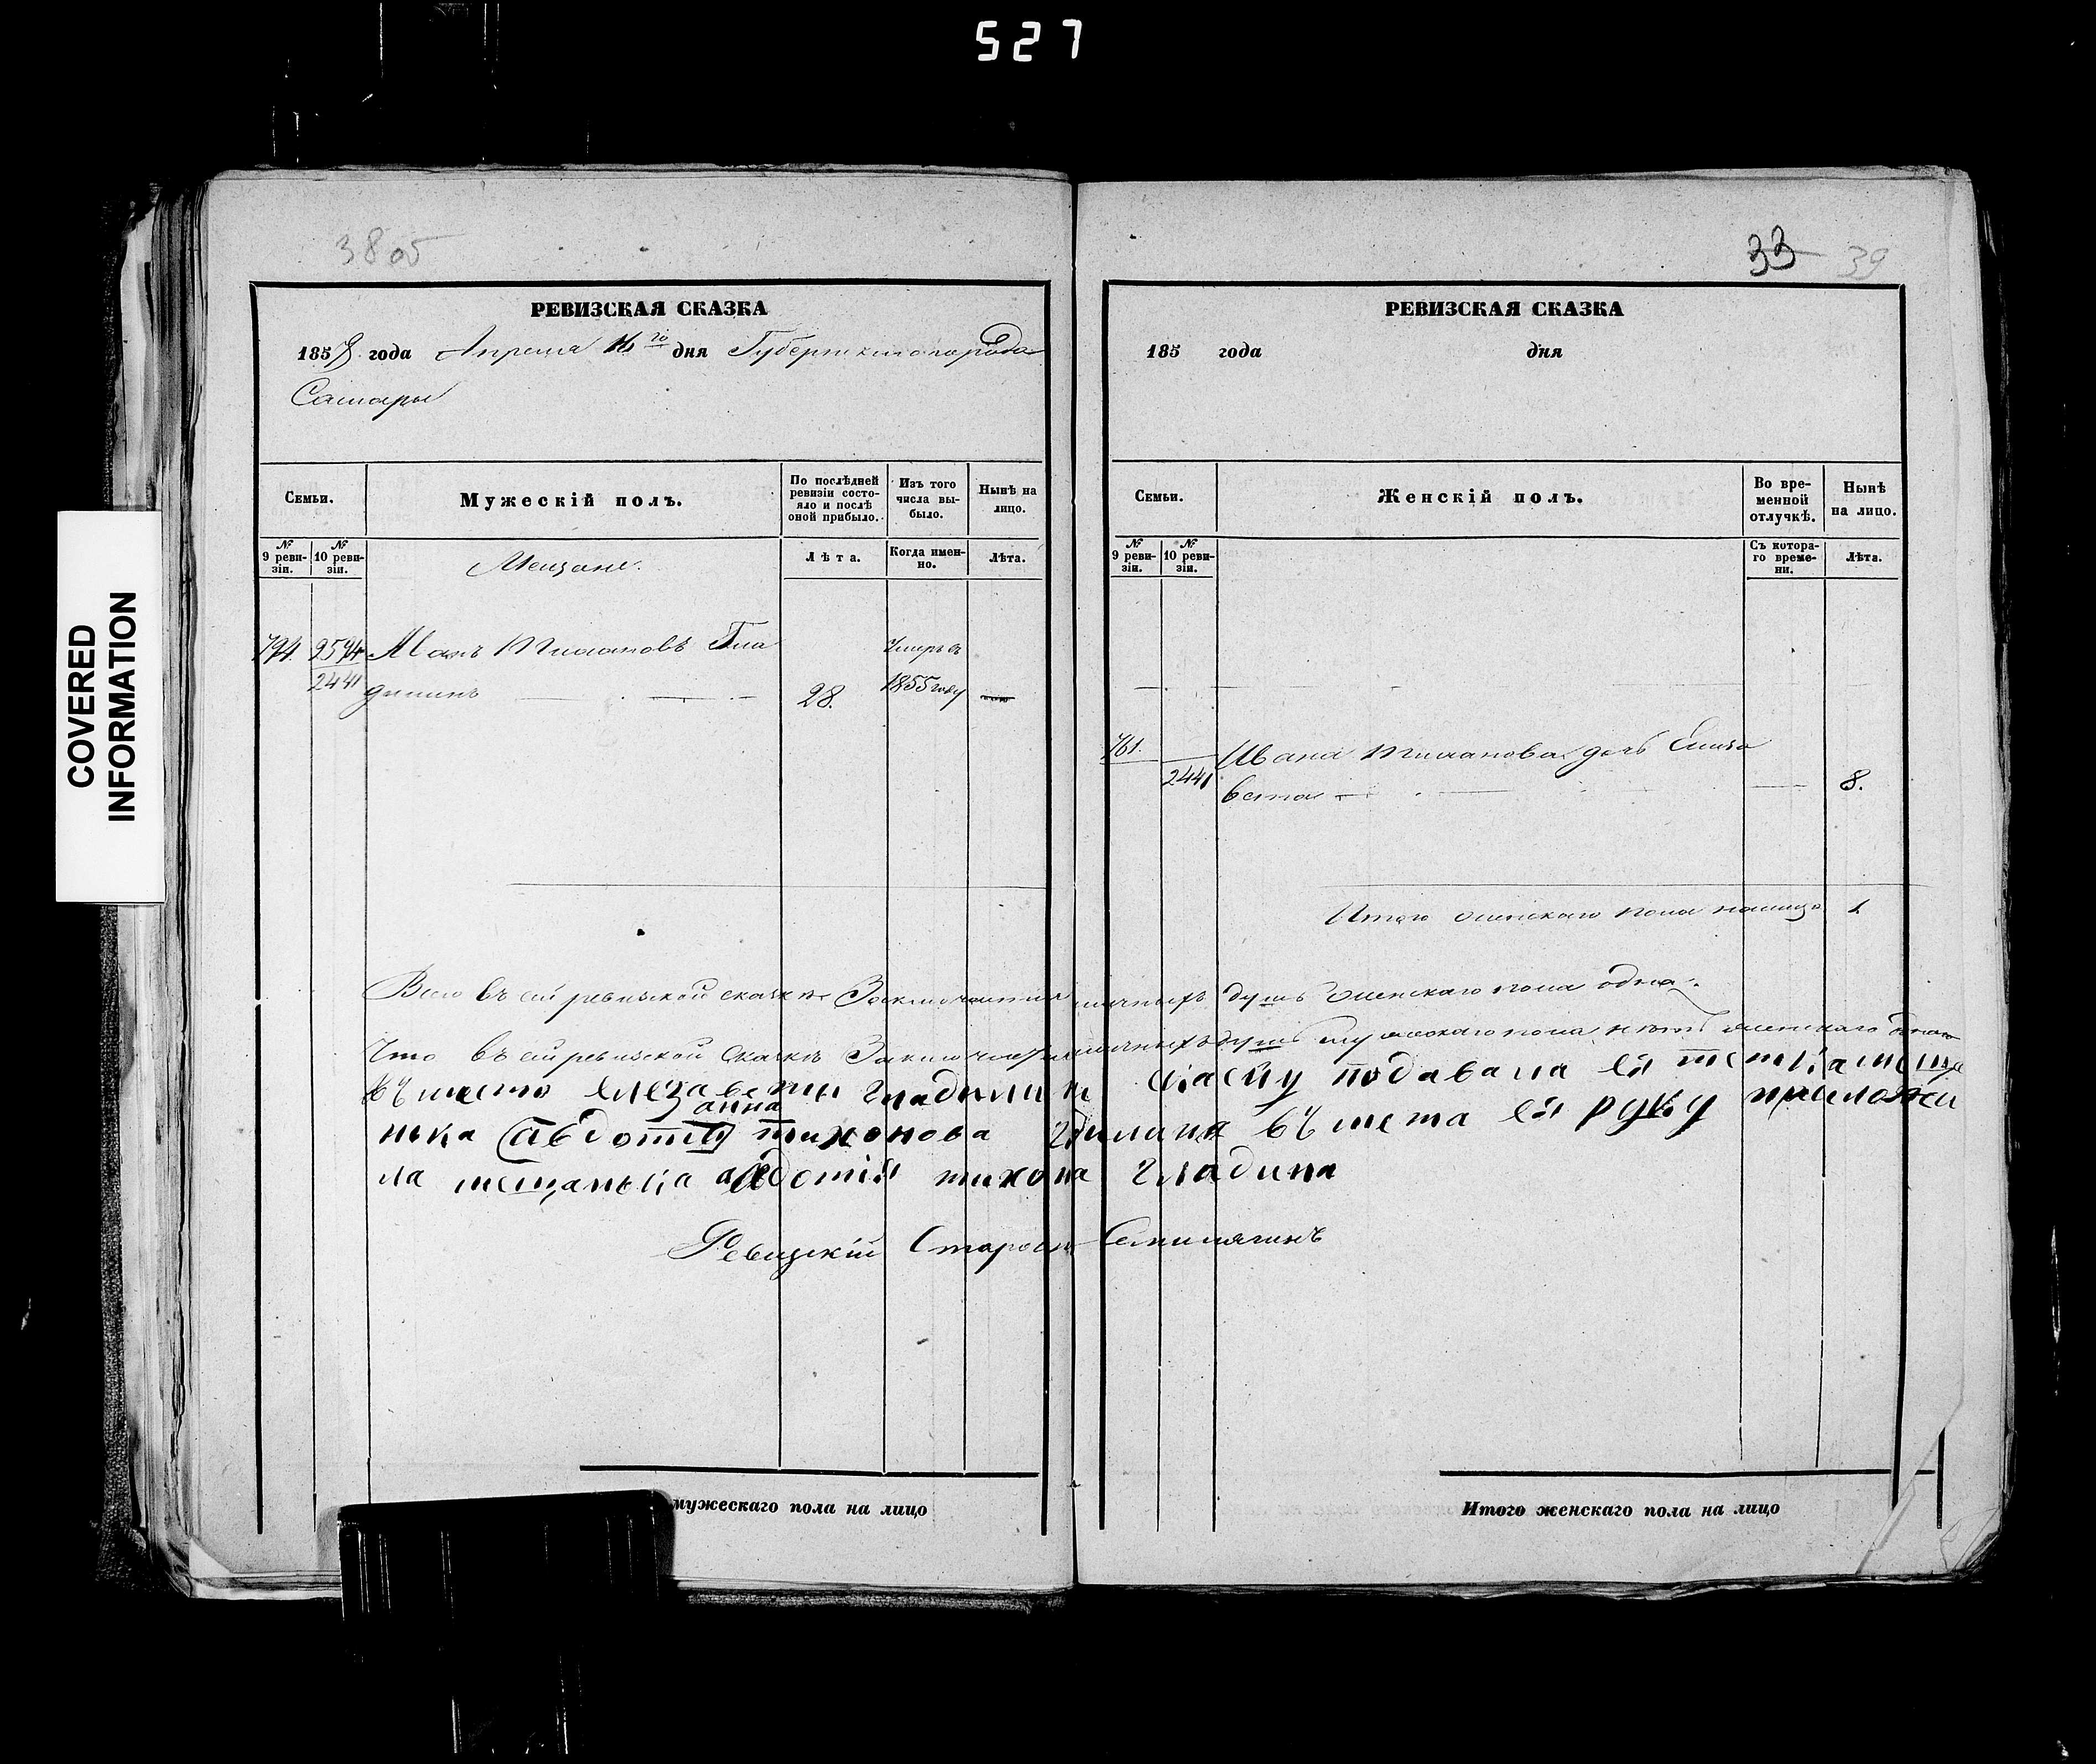 527
3805
33 39
РЕВИЗСКАЯ СКАЗКА
1858 года Апреля 16го дня Губернскаго города
Самары
Семьи.
Мужескій полъ.
По послѣдней ревизіи состояло и послѣ оной прибыло.
Изъ того числа выбыло.
Нынѣ на лицо.
№ 9 ревизіи.
№ 10 ревизіи.
Мещане.
Лѣта.
Когда именно.
Лѣта.
794. 2594 Иванъ Гла
2441 дилинъ 28. Умеръ въ 1855 году
мужескаго пола на лицо
РЕВИЗСКАЯ СКАЗКА
185 года дня
Семьи.
Женскій полъ.
Во временной отлучкѣ.
Нынѣ на лицо.
№ 9 ревизіи.
№ 10 ревизіи.
Съ котораго времени.
Лѣта.
761. Ивана дочь Елиза
2441 вета 8.
Итого женскаго пола налицо 1.
Всего въ сей ревизской сказкѣ Заключается наличныхъ душъ женскаго пола одна.
Что въ сей ревизской сказкѣ Заключается наличныхъ душъ мужескаго пола нѣтъ женскаго одна
въместо елезаветы гладилин скаску подавала ея тетка меща
анна
нька авдотья тихонова въмета ея руку приложи
ла мещанька авдотія тихона гладина
Ревизскій Староста
Итого женскаго пола на лицо
COVERED
INFORMATION